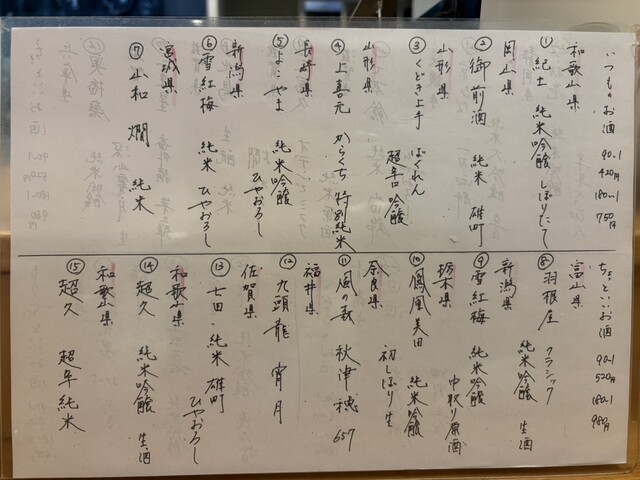 いつものお酒 90-1 420円 180-1 750円
和歌山県
① 紀土 純米吟醸 しぼりたて
岡山県
② 御前酒 純米 雄町
山形県
③ くどき上手 ばくれん 超辛口吟醸
山形県
④ 上喜元 からくち 特別純米
長崎県
⑤ よこやま 純米吟醸 ひやおろし
新潟県
⑥ 雪紅梅 純米 ひやおろし
宮城県
⑦ 山和 燗 純米
ちょっといいお酒 90-1 520円 180-1 980円
富山県
⑧ 羽根屋 クラシック 純米吟醸 生酒
新潟県
⑨ 雪紅梅 純米吟醸 中取り原酒
栃木県
⑩ 鳳凰美田 純米吟醸 初しぼり生
奈良県
⑪ 風の森 秋津穂 657
福井県
⑫ 九頭龍 宵月
佐賀県
⑬ 七田・純米 雄町 ひやおろし
和歌山県
⑭ 超久 純米吟醸 生酒
和歌山県
⑮ 超久 超辛純米